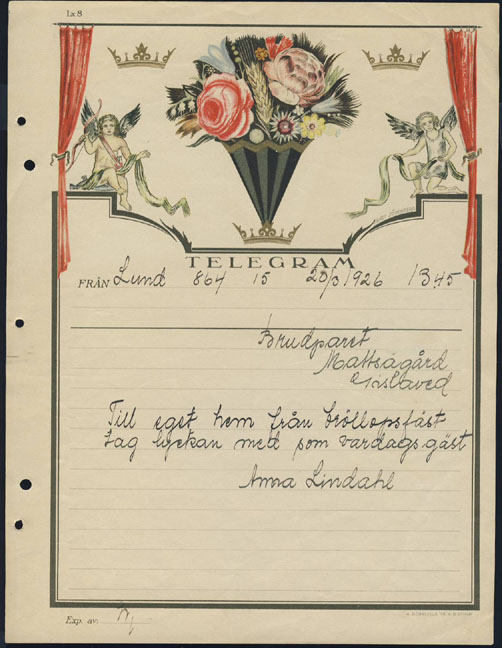 Lx 8
TELEGRAM
FRÅN Lund 864 15 20/3 1926 13.45
Brudparet
Mattsagård
Gislaved
Till eget hem från bröllopsfäst
tag lyckan med som vardagsgäst
Anna Lindahl
Exp. av: